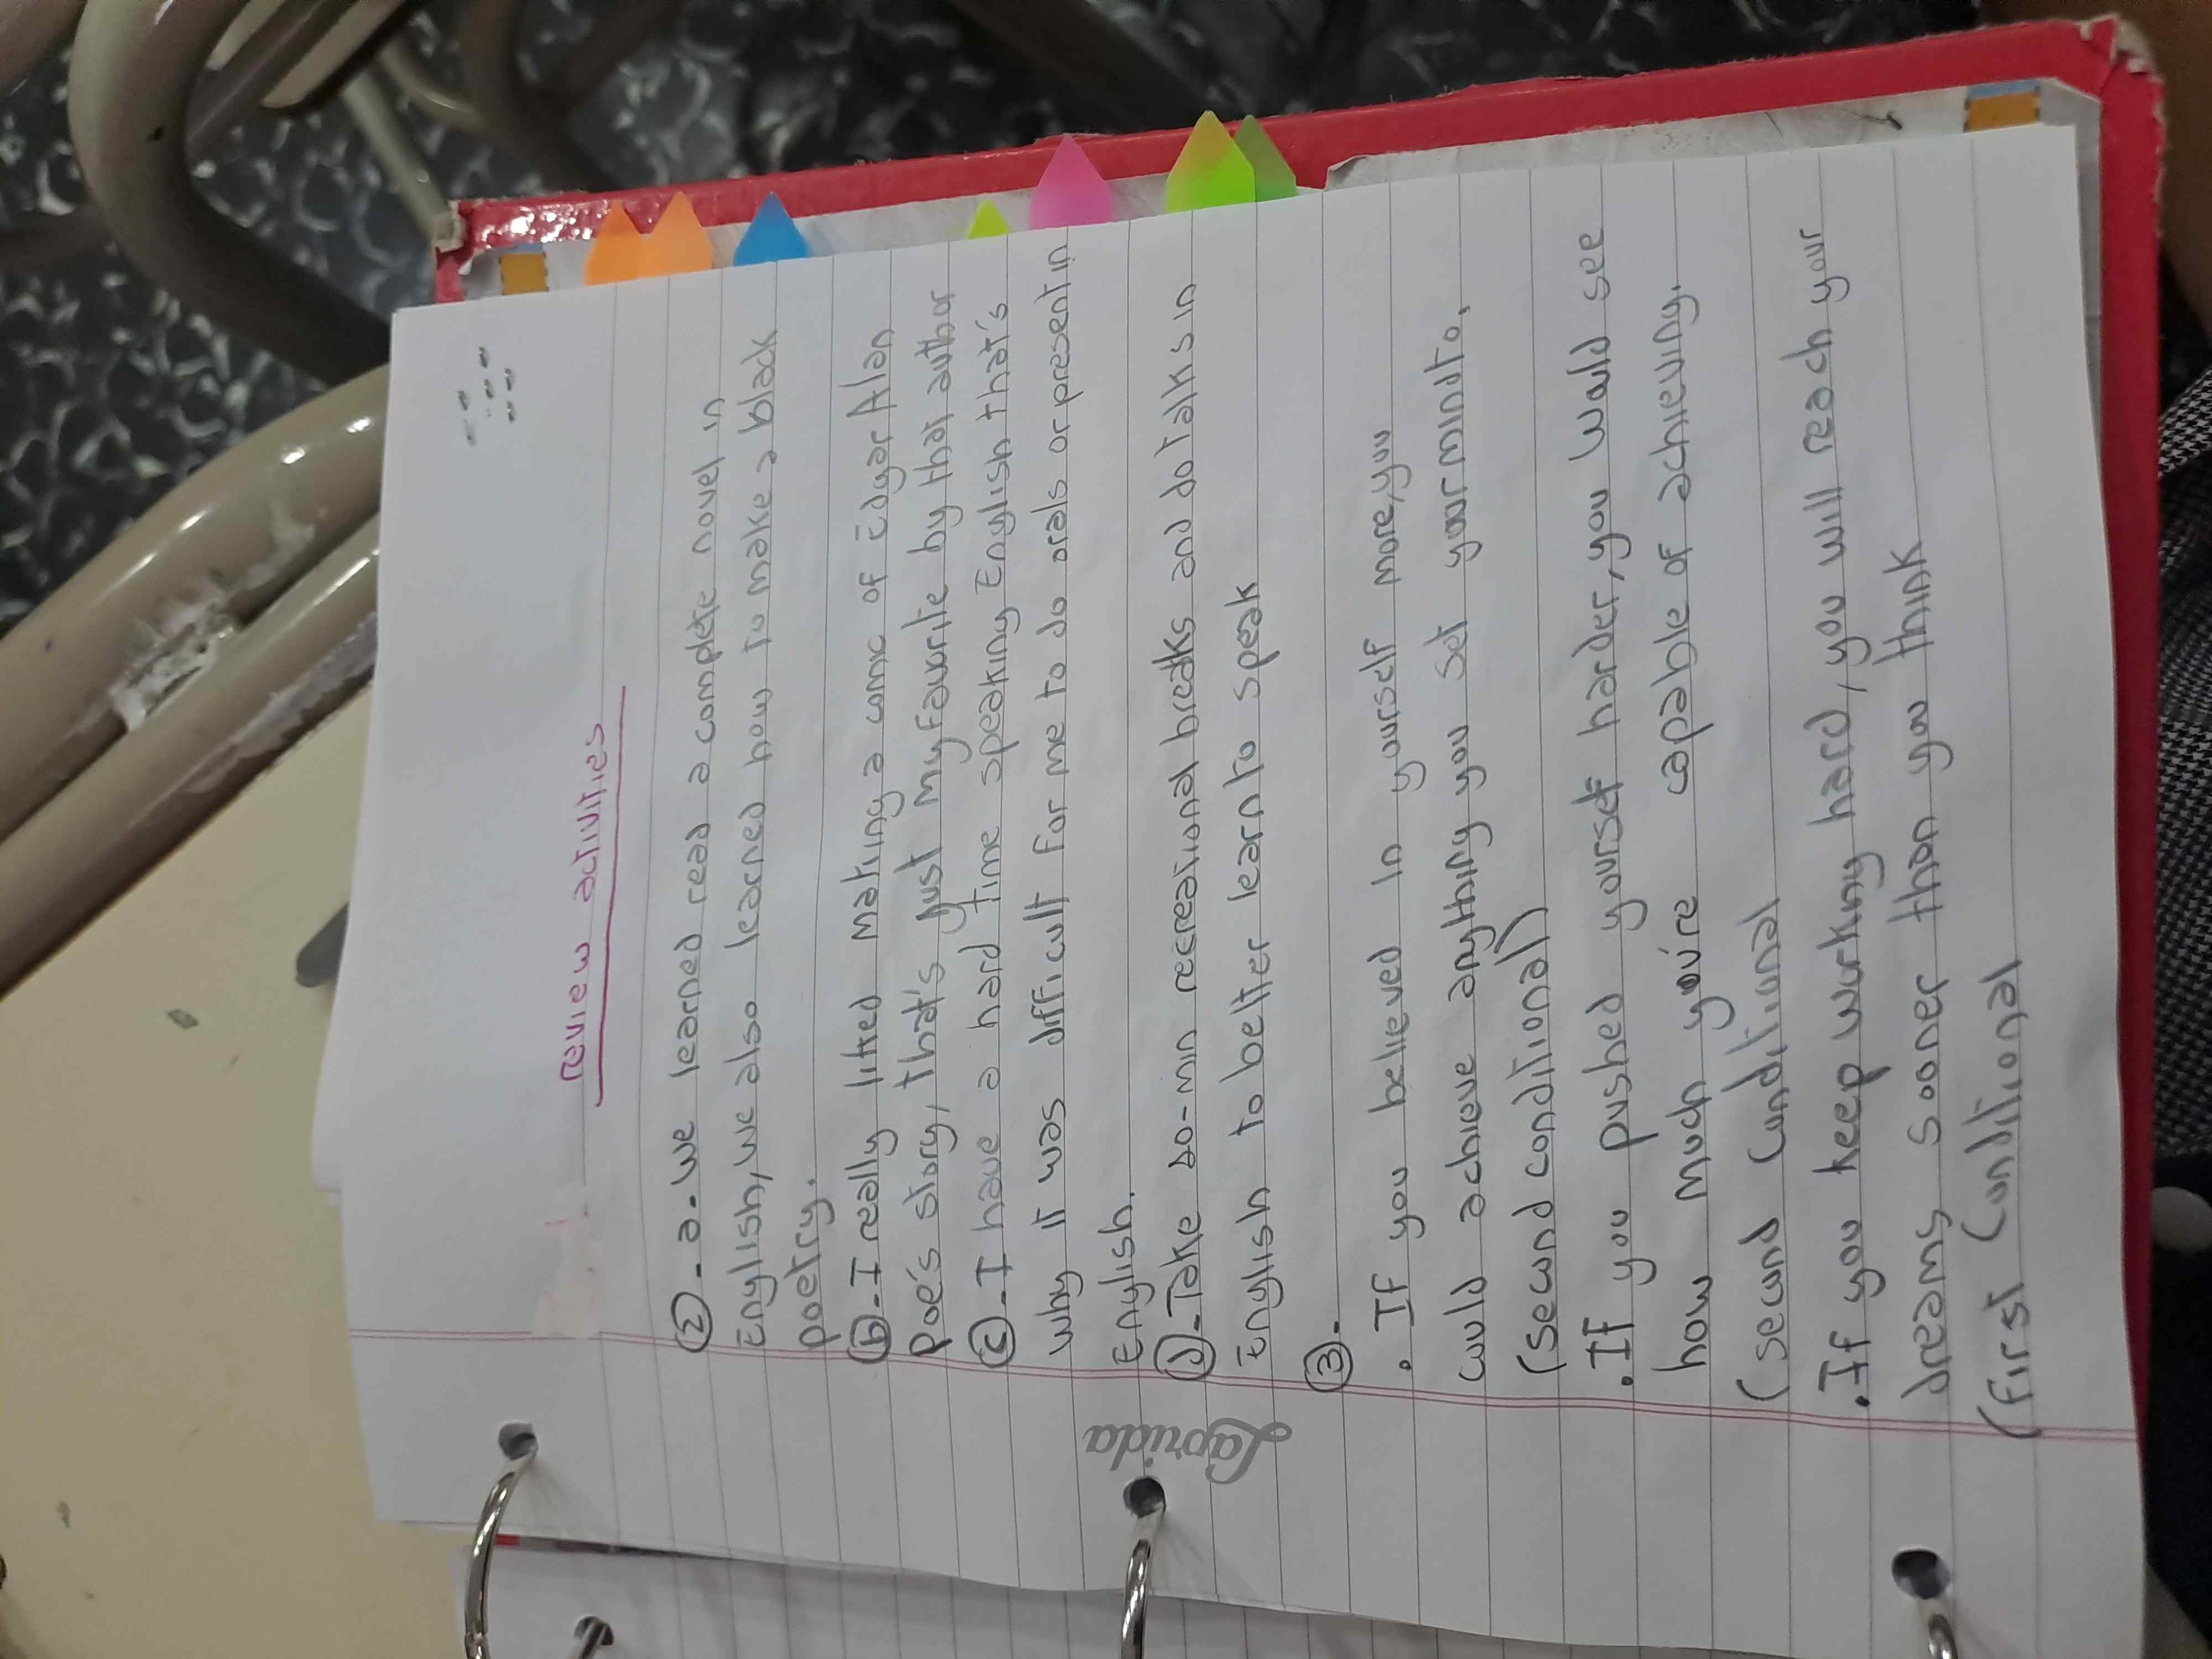 review activities
②-a-We learned read a complete novel in
English, we also learned how to make a black
poetry.
ⓑ-I really liked making a comic of Edgar Alan
Poe's story, that's just my favourite by that author
ⓒ-I have a hard time speaking English that's
why it was difficult for me to do orals or present in
English.
ⓓ-Take 20-min recreational breaks and do talks in
English to better learn to speak
③-
. If you believed in yourself more, you
could achieve anything you set your mind to.
(second conditional)
. If you pushed yourself harder, you would see
how much you're capable of achieving.
(second conditional
. If you keep working hard, you will reach your
dreams sooner than you think
(first conditional
Laprida